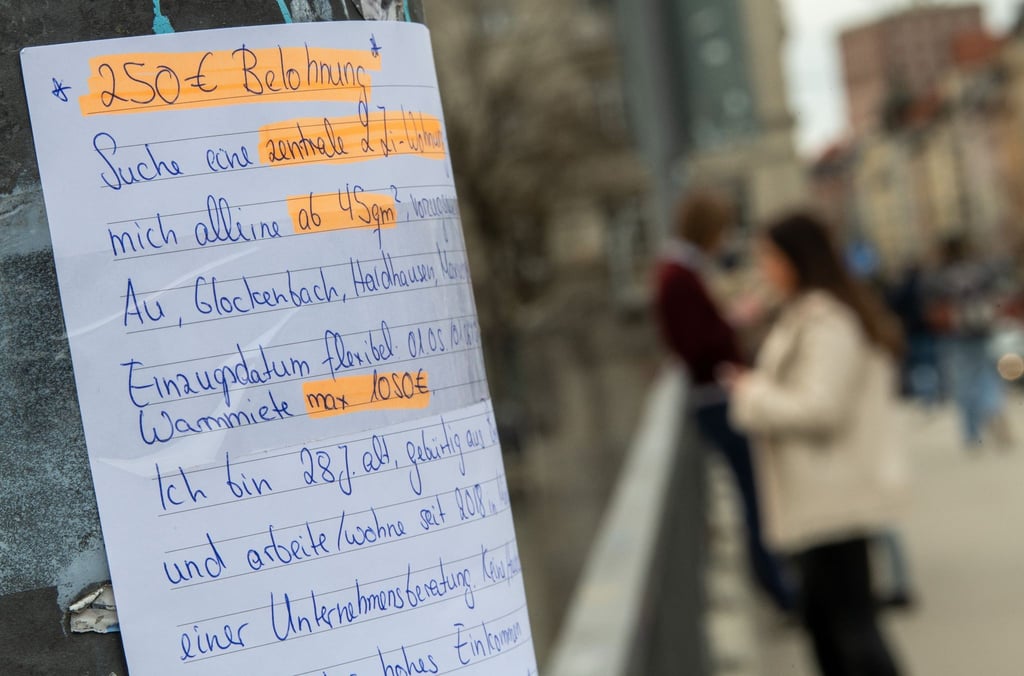 * 250 € Belohnung *
Suche eine zentrale 2 Zi-Wohnung
mich alleine ab 45qm²,
Au, Glockenbach, Haidhausen,
Einzugsdatum flexibel. 01.05
Warmmiete max 1050€.
Ich bin 28 J. alt, gebürtig aus
und arbeite/wohne seit 2018 in
einer Unternehmensberatung. Keine
hohes Einkommen